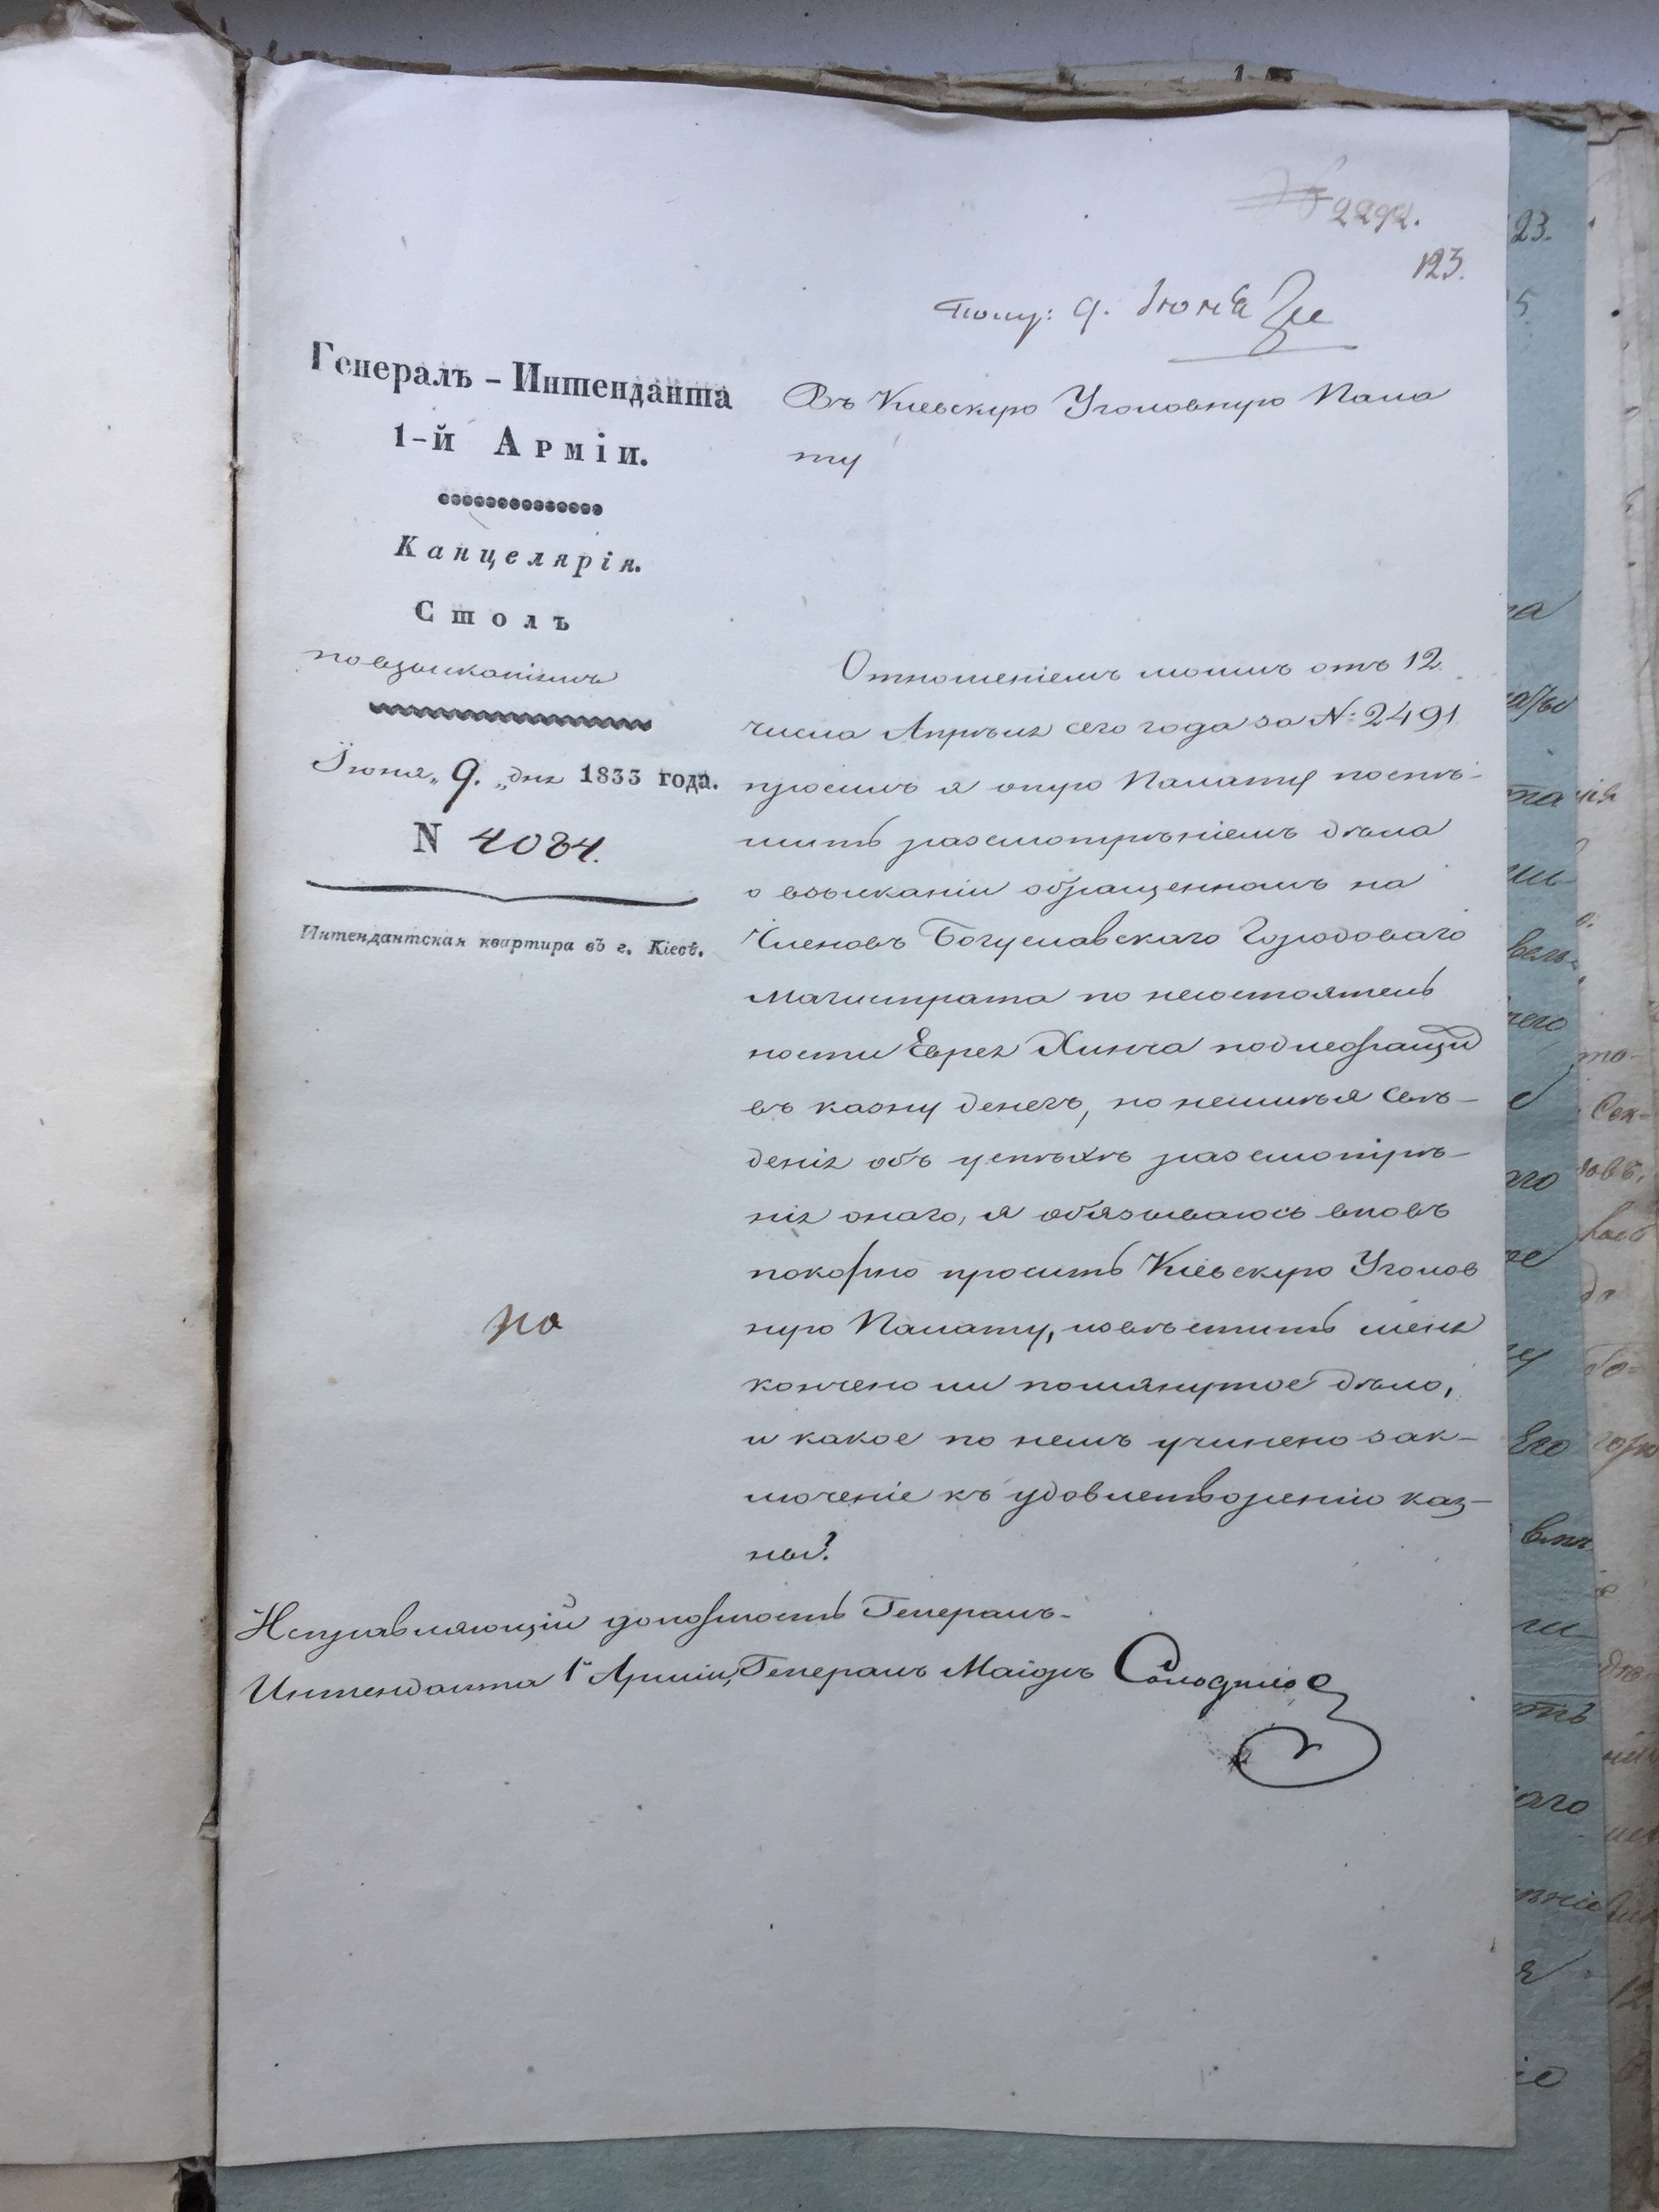 2292.
123.
Полу: 9. Июня
Генералъ - Интенданта
1-й Арміи.
Канцелярія.
Столъ
по взысканіямъ
Іюня „ 9. „ дня 1833 года.
N 4084.
Интендантская квартира въ г. Кіевѣ.
Въ Кіевскую Уголовную Пала
ту
Отношеніемъ моимъ отъ 12
числа Апрѣля сего года за №: 2491
просилъ я оную Палату поспѣ-
шить разсмотрѣніемъ дѣла
о взысканіи обращенномъ на
Членовъ Богуславскаго Городоваго
Магистрата по несостоятель
ности Еврея Хинча подлежащихъ
въ казну денегъ, но неимѣя свѣ-
денія объ успѣхѣ разсмотрѣ-
нія онаго, я обязываюсь вновь
покорно просить Кіевскую Уголов
ную Палату, повѣстить меня
кончено ли помянутое дѣло,
и какое по немъ учинено зак-
люченіе къ удовлетворенію каз-
ны?
Исправляющій должность Генералъ-
Интенданта 1й Арміи, Генералъ Маіоръ